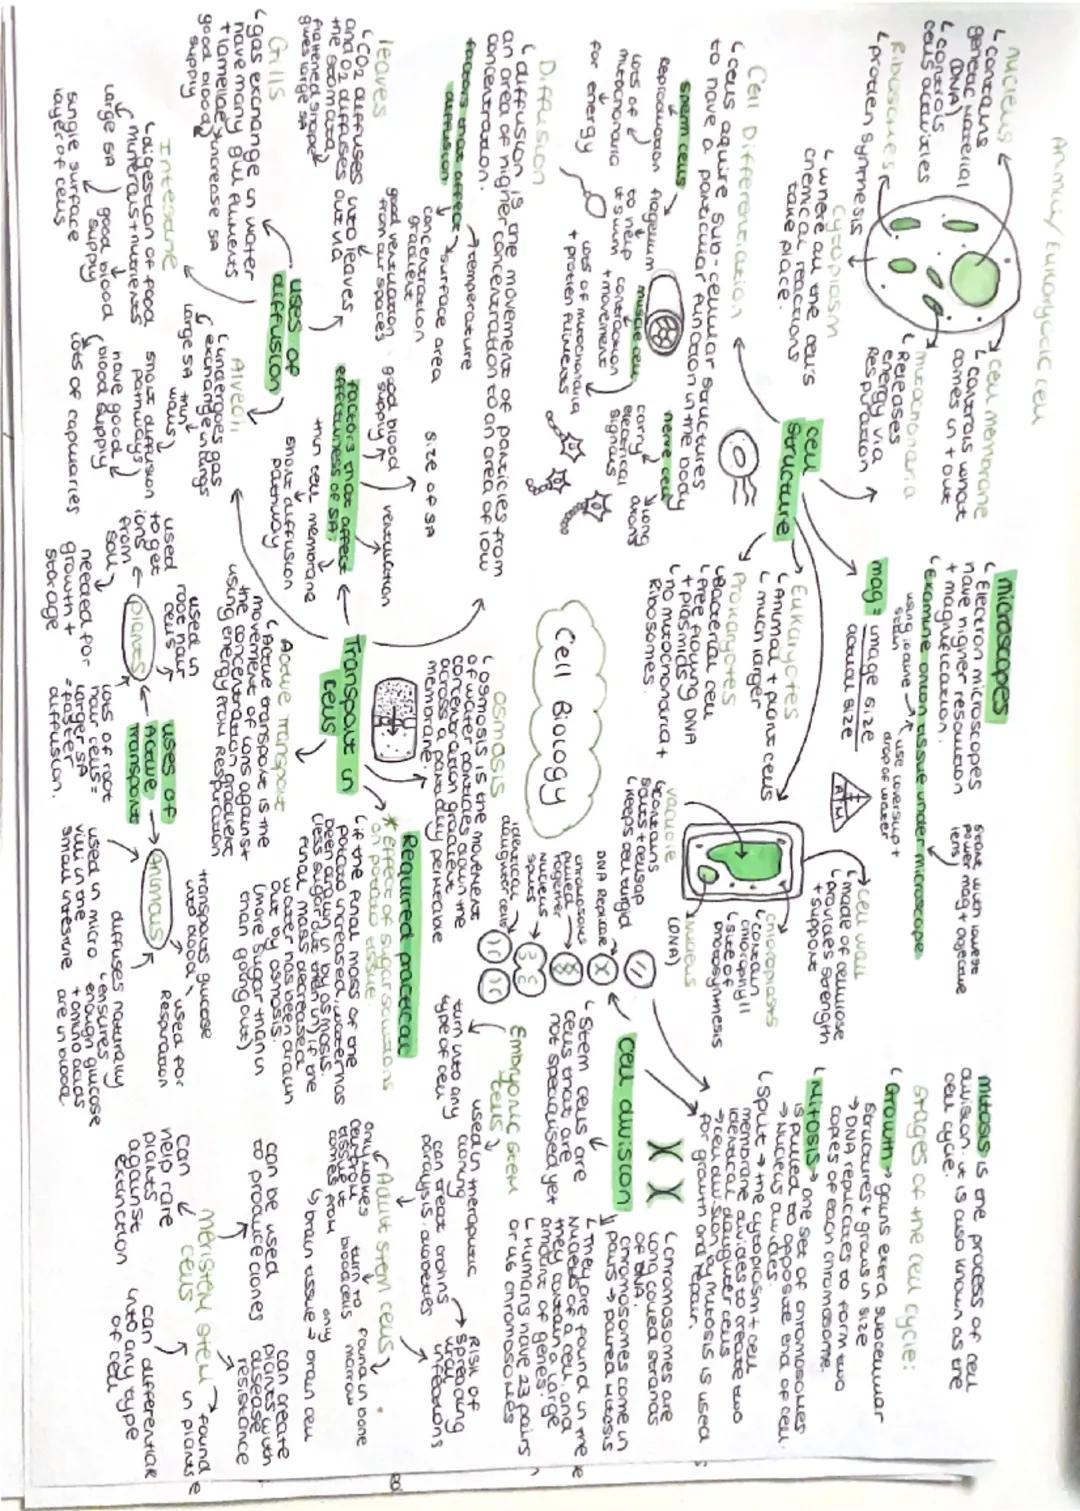 Animal/ Eukaryotic cell
nucleus
↳ contains
genetic material
(DNA)
↳ controls
cells activities
Ribosomes
↳ protein synthesis
cell membrane
↳ controls what
comes in + out
mitochondria
↳ Releases
energy via
Respiration
Cytoplasm
↳ where all the cell's
chemical reactions
take place.
cell
structure
Cell Differentiation
↳ cells aquire sub-cellular structures
to have a particular function in the body
sperm cells
Reproduction
lots of
mitochondria
for energy
flagellum
to help
it swim
muscle cell
contraction
+ movement
lots of mitochondria
+ protein filments
nerve cell
carry
electrical
signals
long
axons
Diffusion
↳ diffusion is the movement of particles from
an area of higher concentration to an area of low
concentration.
factors that affect
diffusion.
→ temperature
surface area
concentration
gradient
leaves
↳ CO2 diffuses into leaves
and O2 diffuses out via
the stomata
flattened shape
gives large SA
good ventilation
from air spaces
Gills
↳ gas exchange in water
have many gill filments
+ lamellae → increase SA
good blood
supply
uses of
diffusion
factors that affect
effectivness of SA
size of SA
ventilation
good blood
supply
thin cell membrane
short diffusion
pathway
Intestine
↳ digestion of food
minerals + nutrients
large SA
good blood
supply
single surface
layer of cells
Alveoli
↳ undergoes gas
exchange in lungs
large SA
thin
walls
short diffusion
pathways
have good
blood supply
lots of capillaries
microscopes
↳ Electron microscopes
have higher resolution
+ magnification.
↳ Examine onion tissue under microscope
using iodine
stain
use coverslip +
drop of water
start with lowest
power mag + objective
lens
mag = image size
actual size
I
A M
Eukaryotes
↳ Animal + plant cells
↳ much larger
Prokaryotes
↳ Bacterial cell
↳ free floating DNA
+ plasmids
↳ no mitochondria +
Ribosomes.
cell wall
↳ made of cellulose
↳ provides strength
+ support
chloroplasts
↳ contain
chlorophyll
↳ site of
photosynthesis
vacuole
↳ contains
salts + cell sap
↳ keeps cell turgid
nucleus
(DNA)
Cell Biology
Osmosis
↳ osmosis is the movement
of water particles down the
concentration gradient
across a partially permeable
membrane
Transport in
cells
Active Transport
↳ Active transport is the
movement of ions against
the concentration gradient
using energy from respiration
uses of
Active
Transport
plants
used in
root hair
cells
used
to get
ions
from
soil
needed for
growth +
storage
lots of root
hair cells =
larger SA
= faster
diffusion.
Animals
transports glucose
into blood
used for
Respiration
used in micro
villi in the
small intestine
diffuses naturally
↳ ensures
enough glucose
+ amino acids
are in blood
Required practical
* effect of sugar solutions
on potato tissue
↳ if the final mass of the
potato increased, water has
been drawn in by osmosis.
(less sugar out than in) if the
final mass decreased
water has been drawn
out by osmosis.
(more sugar than in
than going out)
DNA Replicate
chromosomes
nucleus
splits
identical
daughter cells
cell division
mitosis is the process of cell
division. it is also known as the
cell cycle.
stages of the cell cycle:
↳ Growth → gains extra subcellular
structures + grows in size
→ DNA replicates to form two
copies of each chromosome.
↳ Mitosis → one set of chromosomes
is pulled to opposite end of cell.
→ Nucleus divides.
↳ split → the cytoplasm + cell
membrane divides to create two
identical daughter cells
→ cell division by mitosis is used
for growth and repair.
↳ chromosomes are
long coiled strands
of DNA.
chromosomes come in
pairs → paired mitosis
↳ they are found in the
nucleus of a cell, and
they contain a large
amount of genes.
↳ Humans have 23 pairs
or 46 chromosomes
↳ Stem cells are
cells that are
not specialised yet
Embryonic stem
cells
turn into any
type of cell
used in theraputic
cloning
can treat crohns
paralysis. diabetes
Risk of
spreading
viral
infections
Adult stem cells
only makes
cell from
tissue it
comes from
turn to any
blood cells
found in bone
marrow
↳ brain tissue → brain cell
meristem stem
cells
found
in plants
can differentiate
into any type
of cell
can be used
to produce clones
can create
plants with
disease
resistance
can
help rare
plants
against
extinction
8